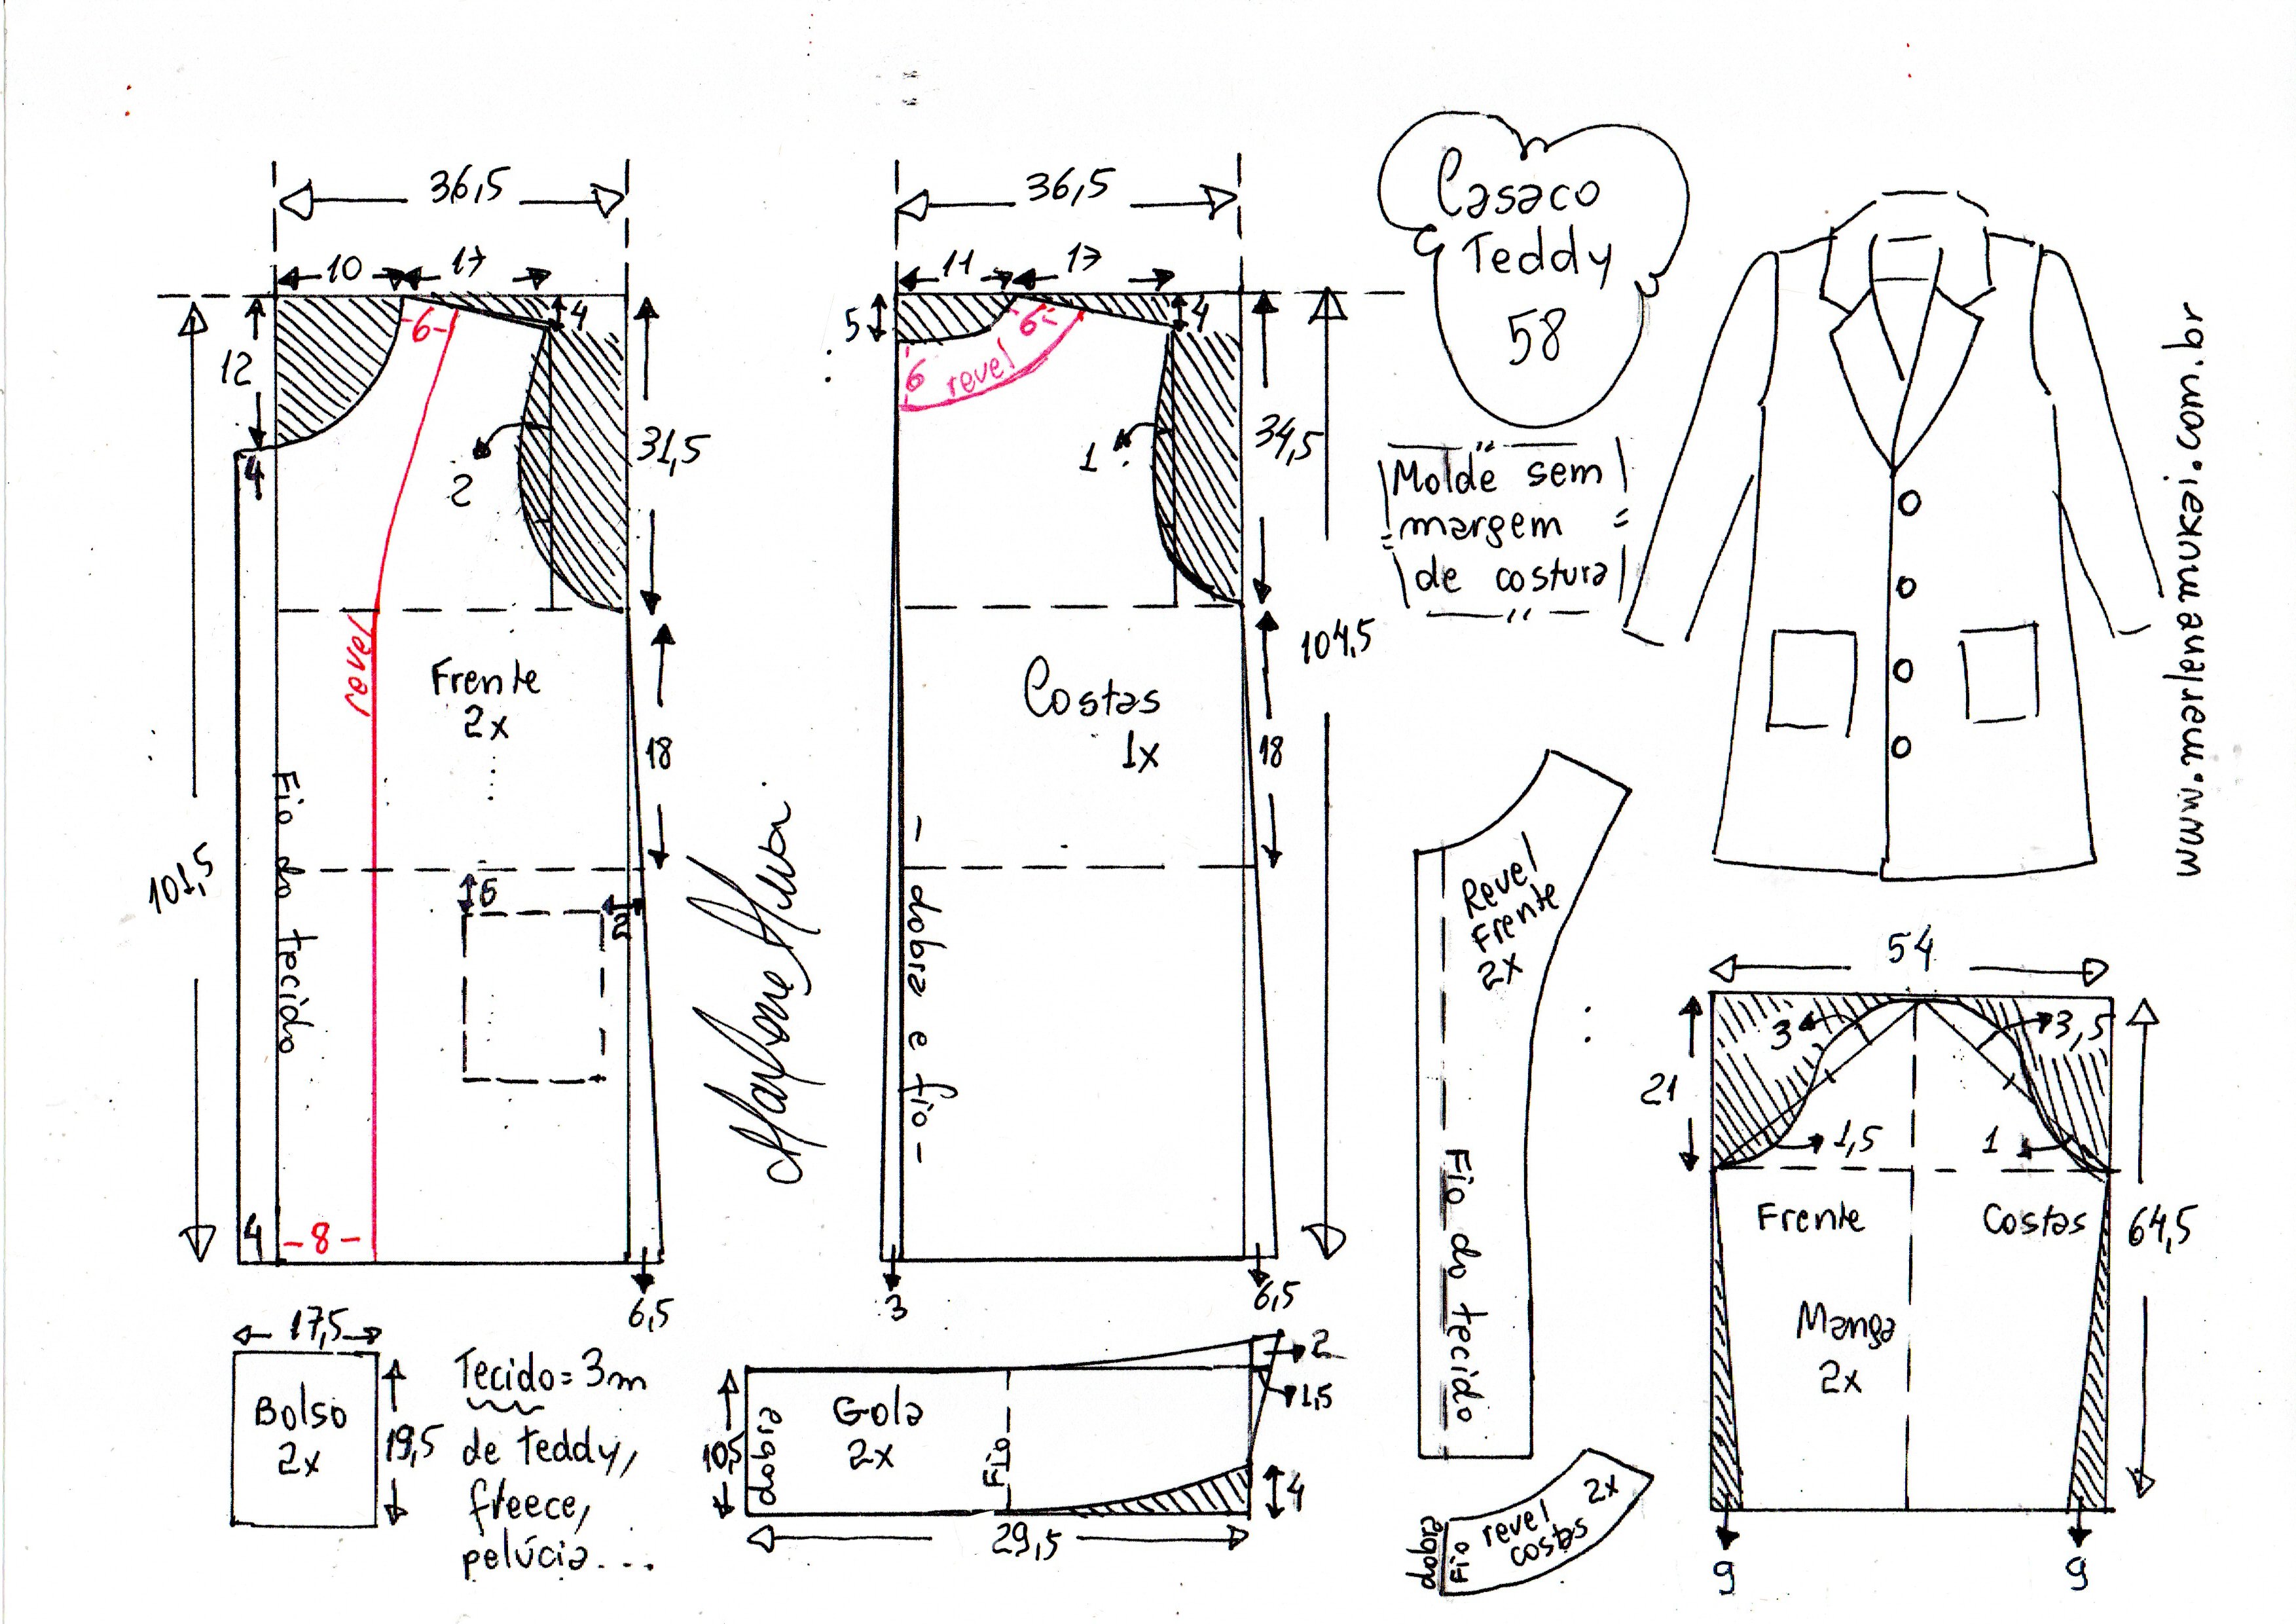 36,5
10
17
4
12
-6-
4
2
31,5
Frente
2x
revel
18
101,5
Fio do tecido
6
2
4
-8-
6,5
36,5
11
17
5
4
-6-
6
revel
1
34,5
Costas
1x
18
104,5
- dobra e fio -
3
6,5
Marlene Mukai
Casaco
Teddy
58
Molde sem
margem
de costura
www.marlenemukai.com.br
Revel
Frente
2x
Fio do tecido
54
3
3,5
21
1,5
1
Frente
Costas
64,5
Manga
2x
9
9
17,5
Bolso
2x
19,5
Tecido = 3m
de teddy,
freece,
pelúcia...
10,5
dobra
Gola
2x
Fio
2
1,5
4
29,5
dobra
Fio
revel
costas
2x